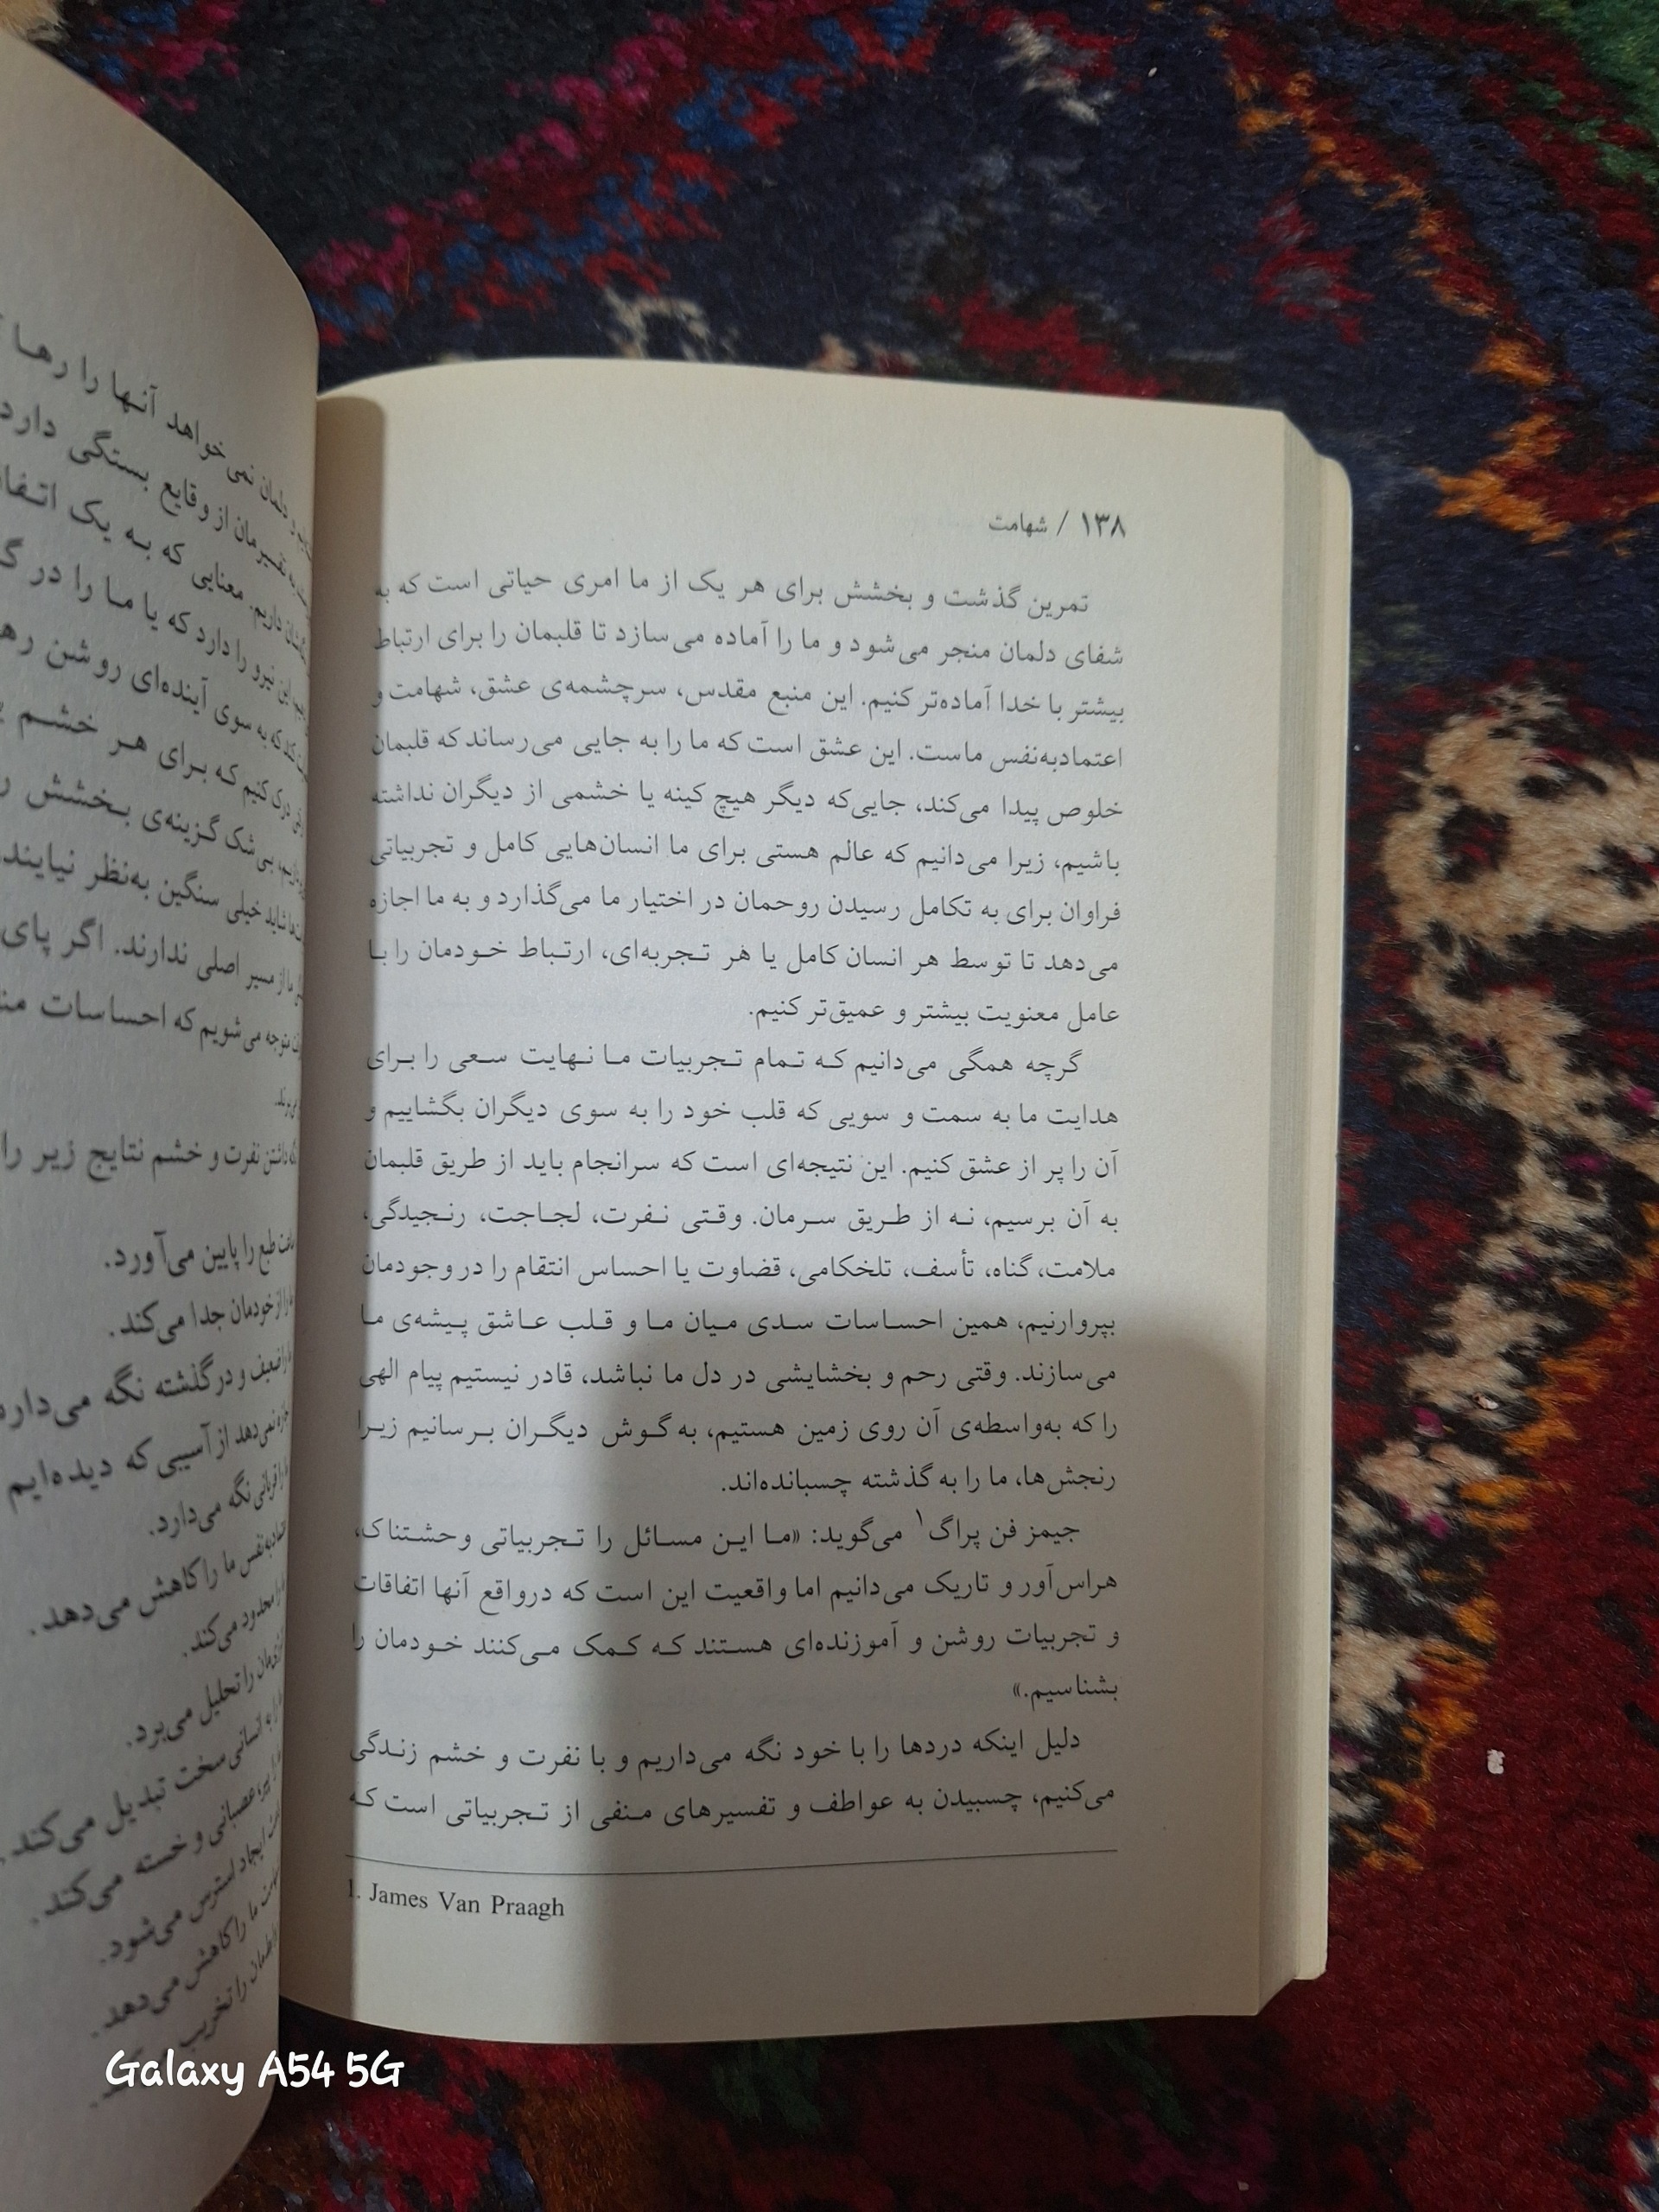 ۱۳۸ / شهامت
تمرین گذشت و بخشش برای هر یک از ما امری حیاتی است که به
شفای دلمان منجر می‌شود و ما را آماده می‌سازد تا قلبمان را برای ارتباط
بیشتر با خدا آماده‌تر کنیم. این منبع مقدس، سرچشمه‌ی عشق، شهامت و
اعتمادبه‌نفس ماست. این عشق است که ما را به جایی می‌رساند که قلبمان
خلوص پیدا می‌کند، جایی‌که دیگر هیچ کینه یا خشمی از دیگران نداشته
باشیم، زیرا می‌دانیم که عالم هستی برای ما انسان‌هایی کامل و تجربیاتی
فراوان برای به تکامل رسیدن روحمان در اختیار ما می‌گذارد و به ما اجازه
می‌دهد تا توسط هر انسان کامل یا هر تجربه‌ای، ارتباط خودمان را با
عامل معنویت بیشتر و عمیق‌تر کنیم.
گرچه همگی می‌دانیم که تمام تجربیات ما نهایت سعی را برای
هدایت ما به سمت و سویی که قلب خود را به سوی دیگران بگشاییم و
آن را پر از عشق کنیم. این نتیجه‌ای است که سرانجام باید از طریق قلبمان
به آن برسیم، نه از طریق سرمان. وقتی نفرت، لجاجت، رنجیدگی،
ملامت، گناه، تأسف، تلخکامی، قضاوت یا احساس انتقام را در وجودمان
بپروارنیم، همین احساسات سدی میان ما و قلب عاشق پیشه‌ی ما
می‌سازند. وقتی رحم و بخشایشی در دل ما نباشد، قادر نیستیم پیام الهی
را که به‌واسطه‌ی آن روی زمین هستیم، به گوش دیگران برسانیم زیرا
رنجش‌ها، ما را به گذشته چسبانده‌اند.
جیمز فن پراگ۱ می‌گوید: «ما این مسائل را تجربیاتی وحشتناک،
هراس‌آور و تاریک می‌دانیم اما واقعیت این است که درواقع آنها اتفاقات
و تجربیات روشن و آموزنده‌ای هستند که کمک می‌کنند خودمان را
بشناسیم.»
دلیل اینکه دردها را با خود نگه می‌داریم و با نفرت و خشم زندگی
می‌کنیم، چسبیدن به عواطف و تفسیرهای منفی از تجربیاتی است که
1. James Van Praagh
دلمان نمی‌خواهد آنها را رها
تفسیرمان از وقایع بستگی دارد
داریم. معنایی که به یک
این نیرو را دارد که یا ما را در
که به سوی آینده‌ای روشن
درک کنیم که برای هر خشم
بی‌شک گزینه‌ی بخشش
شاید خیلی سنگین به‌نظر نیایند
ما از مسیر اصلی ندارند. اگر پای
متوجه می‌شویم که احساسات
داشتن نفرت و خشم نتایج زیر را
طبع را پایین می‌آورد.
از خودمان جدا می‌کند.
ضعیف و در گذشته نگه می‌دارد
نمی‌دهد از آسیبی که دیده‌ایم
قربانی نگه می‌دارد.
ما را کاهش می‌دهد.
محدود می‌کند.
را تحلیل می‌برد.
به انسانی سخت تبدیل می‌کند.
عصبانی و خسته می‌کند.
ایجاد استرس می‌شود.
ما را کاهش می‌دهد.
را تخریب
Galaxy A54 5G